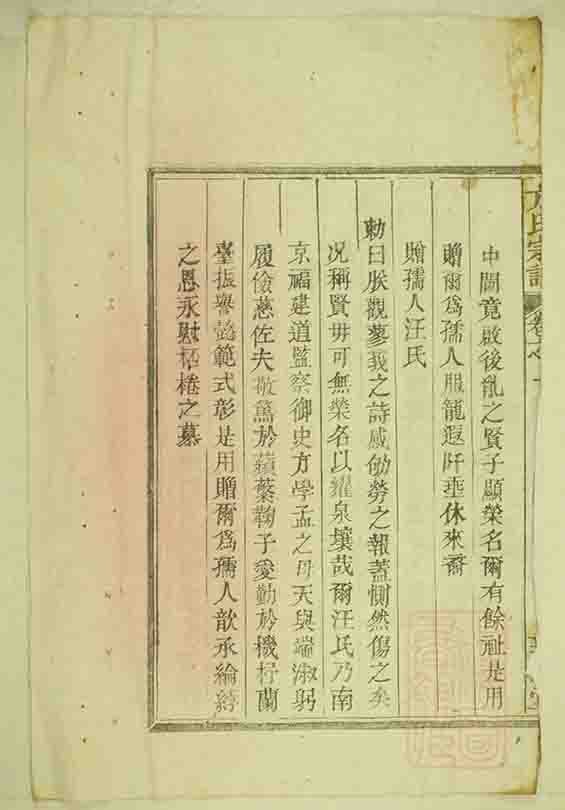 方氏宗譜
卷之一
中閫竟啟後胤之賢子顯榮名爾有餘祉是用
贈爾爲孺人服寵遐阡垂休來裔
贈孺人汪氏
勅曰朕觀蓼莪之詩感劬勞之報蓋惻然傷之矣
况稱賢毋可無榮名以耀泉壤哉爾汪氏乃南
京福建道監察御史方學孟之母天與端淑躬
履儉慈佐夫敬篤於蘋蘩鞠子愛勤於機杼蘭
臺振譽懿範式彰是用贈爾爲孺人歆承綸綍
之恩永慰桮棬之慕